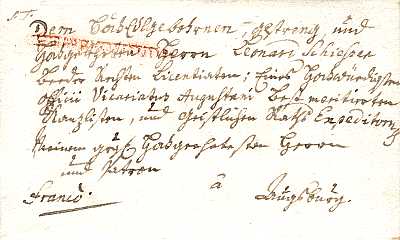 P. T.
Dem HochEdlgebohrnen, gestreng und
Hochgelehrten Herrn Leonard Schießer
beeder Rechten Licentiaten; Eines Hochwürdigsten
officii Vicariatus Augustani Bestmeritirten
Kanzlisten, und Geistlichen Raths Expeditorn
Meinem groß Hochgeehrtesten Herrn
und Patron
Franco. â Augsburg.